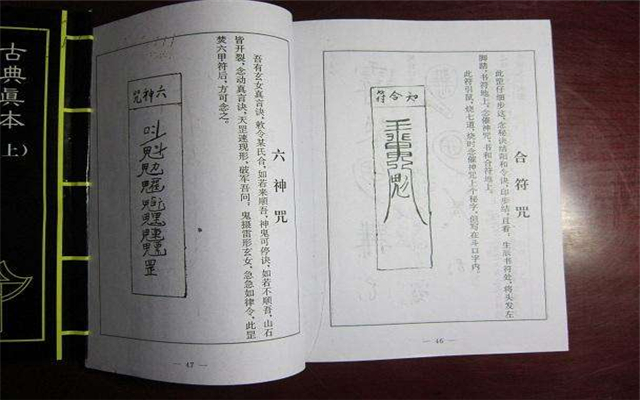 合符咒
此罡仔细步送，念秘诀结阳和令诀，印步结，直看，生后书符处，将头发左
脚踏，书符地上，念催神咒，书和合符地上。
此符引鼠，烧七道，烧时念催神咒上个秘字，但写在斗口字内。
和合符
— 46 —
六神咒
吾有玄女真言诀，敕令某氏食，如若来顺吾，神鬼可停诀，如若不顺吾，山石
皆开裂，念动真言诀，天罡速现形，破军吾问，鬼摄雷形玄女，急急如律令，此罡
焚六甲符后，方可念之。
六神咒
— 47 —
古典眞本
上）